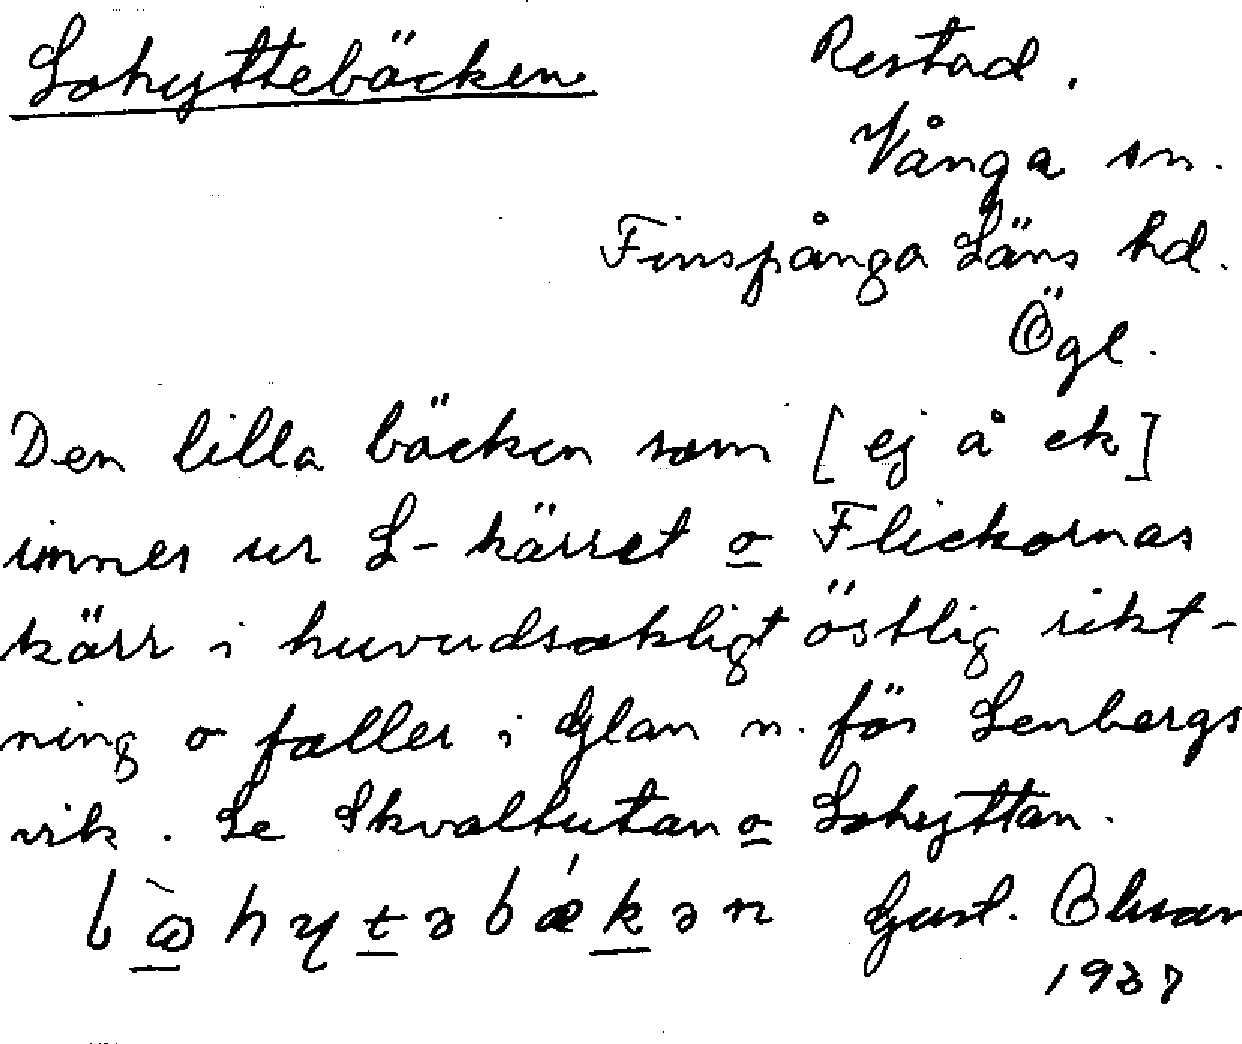 Lohyttebäcken Restad.
Vånga sn.
Finspånga Läns hd.
Ögl.
Den lilla bäcken som [ej å ek]
rinner ur L-kärret o Flickornas
kärr i huvudsakligt östlig rikt-
ning o faller i Glan n. för Lenbergs
vik. Se Skvaltutan o Lohyttan.
hytəbǽkən Gust.
1937